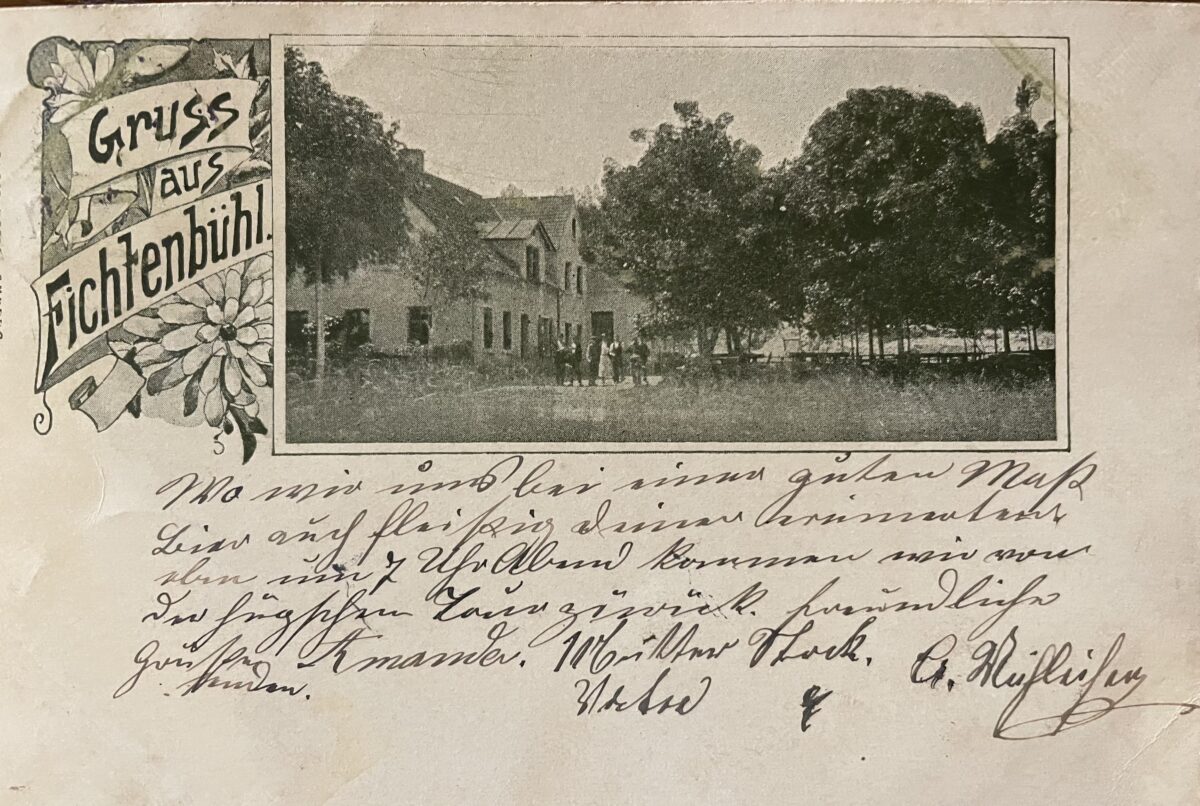 Gruss
aus
Fichtenbühl.
Wo wir uns bei einer guten Maß
Bier auch fleißig deiner erinnerten
eben um 7 Uhr Abend kommen wir von
der Tour zurück. freundliche
Grüße Amanda. Mutter Stock. A.
senden.